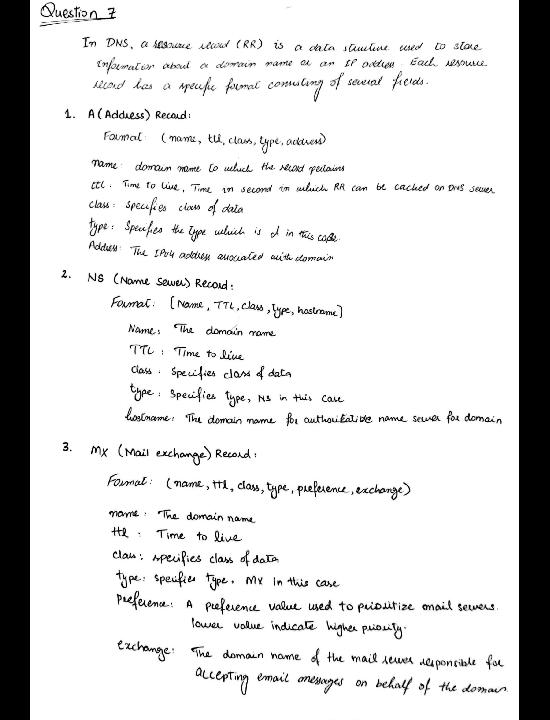 Question 7
In DNS, a resource record (RR) is a data structure used to store
information about a domain name or an IP address. Each resource
record has a specific format consisting of several fields.
1. A (Address) Record:
Format: (name, ttl, class, type, address)
name: domain name to which the record pertains
ttl: Time to live, Time in second in which RR can be cached on DNS server
class: specifies class of data
type: Specifies the type which is A in this case.
Address: The IPv4 address associated with domain
2. NS (Name Server) Record:
Format: [Name, TTL, class, type, hostname]
Name: The domain name
TTL: Time to live
Class: Specifies class of data
type: Specifies type, NS in this case
hostname: The domain name for authoritative name server for domain
3. MX (Mail exchange) Record:
Format: (name, ttl, class, type, preference, exchange)
name: The domain name
ttl: Time to live
class: specifies class of data
type: specifies type. MX in this case
preference: A preference value used to prioritize email servers.
lower value indicate higher priority.
exchange: The domain name of the mail server responsible for
accepting email messages on behalf of the domain